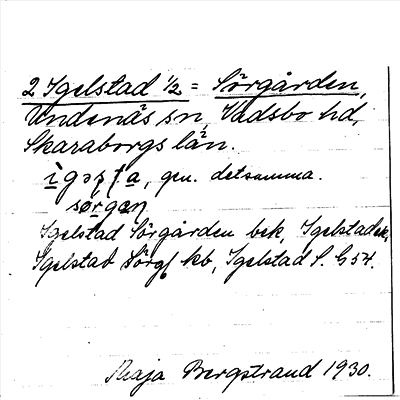 2 Igelstad 1/2 = Sörgården,
Undenäs sn, Vadsbo hd,
Skaraborgs län.
gen. detsamma.
Igelstad Sörgården bek, Igelstad ek,
Igelstad Sörg kb, Igelstad S. G 54.
Maja Bergstrand 1930.